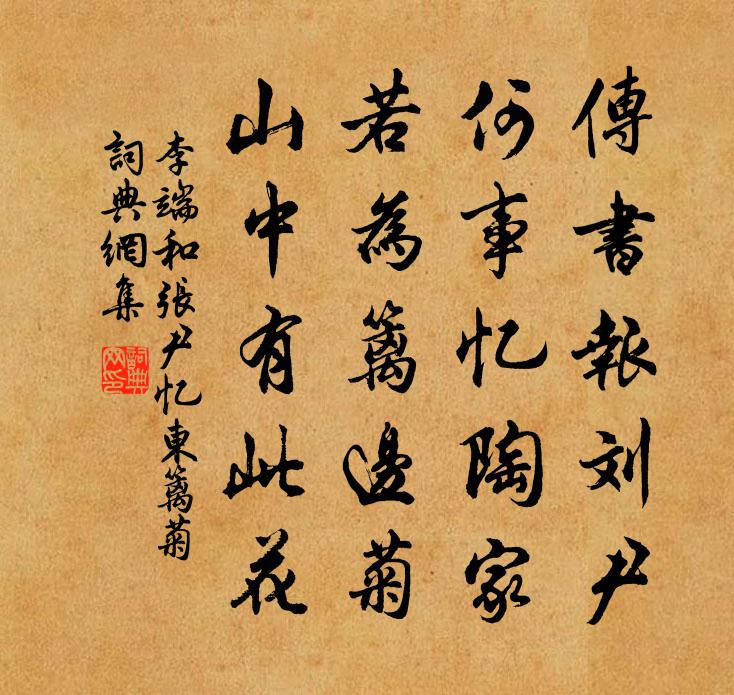 傳書報刘尹
何事忆陶家
若為籬邊菊
山中有此花
李端和張尹忆東籬菊
詞典網集
詞典网印